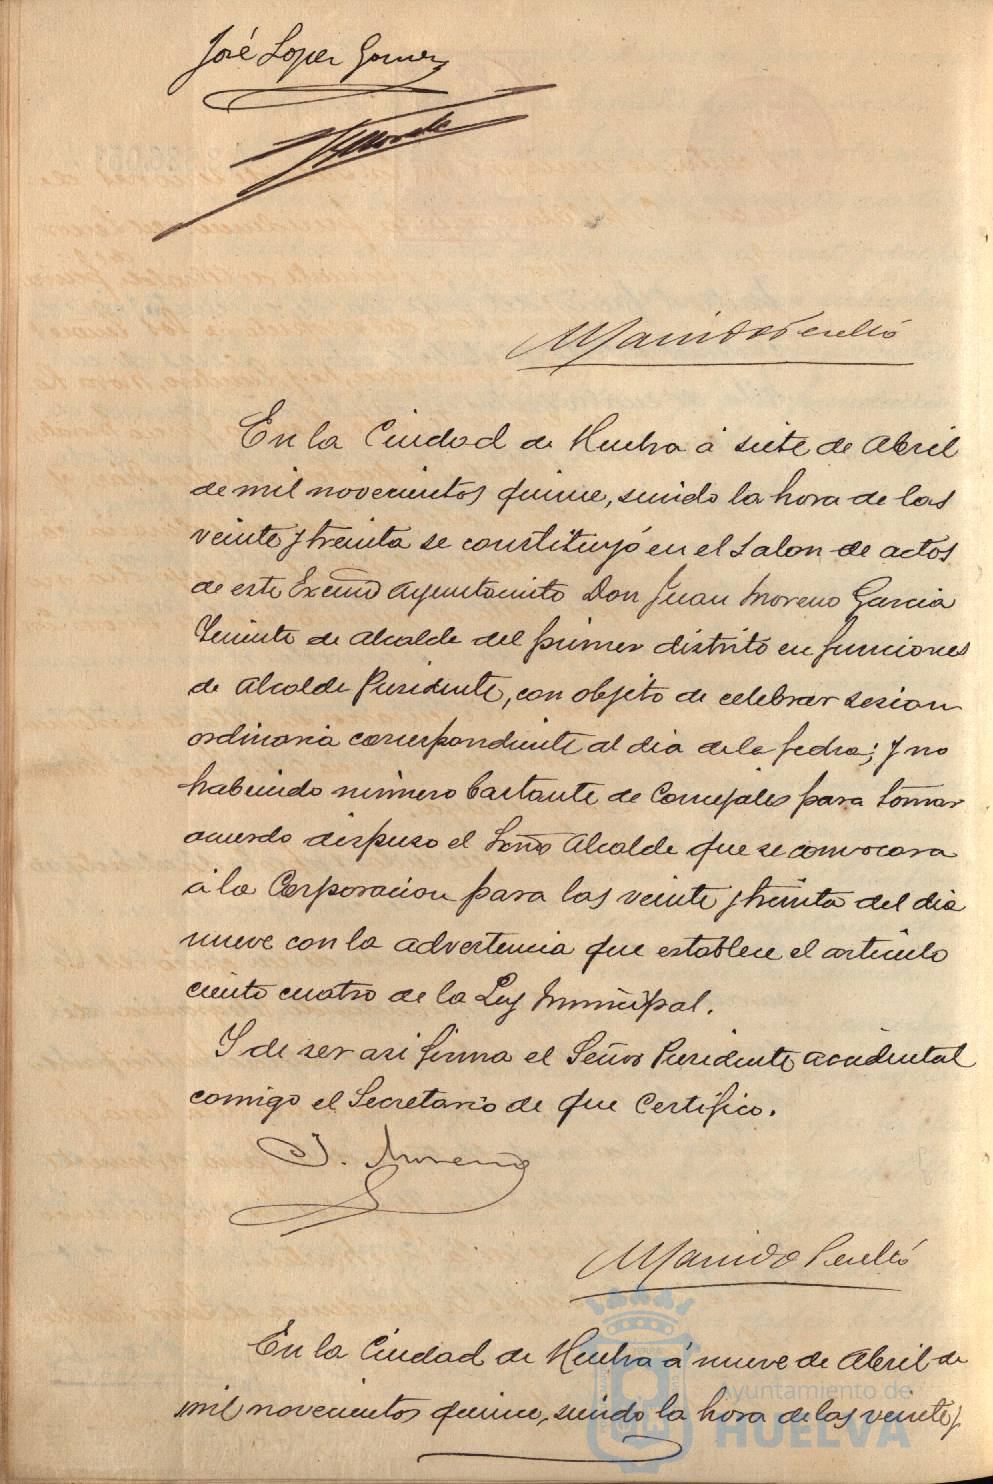 José Lopez Gomez
En la Ciudad de Huelva á siete de Abril
de mil novecientos quince, siendo la hora de las
veinte y treinta se constituyó en el Salon de actos
de este Excmo Ayuntamiento Don Juan Moreno Garcia
Teniente de Alcalde del primer distrito en funciones
de Alcalde Presidente, con objeto de celebrar sesion
ordinaria correspondiente al dia de la fecha; y no
habiendo número bastante de Concejales para tomar
acuerdo dispuso el Señor Alcalde que se convocara
á la Corporacion para las veinte y treinta del dia
nueve con la advertencia que establece el artículo
ciento cuatro de la Ley Municipal.
Y de ser asi firma el Señor Presidente accidental
comigo el Secretario de que Certifico.
J. Moreno
En la Ciudad de Huelva á nueve de Abril de
mil novecientos quince, siendo la hora de las veinte y
Ayuntamiento de
HUELVA